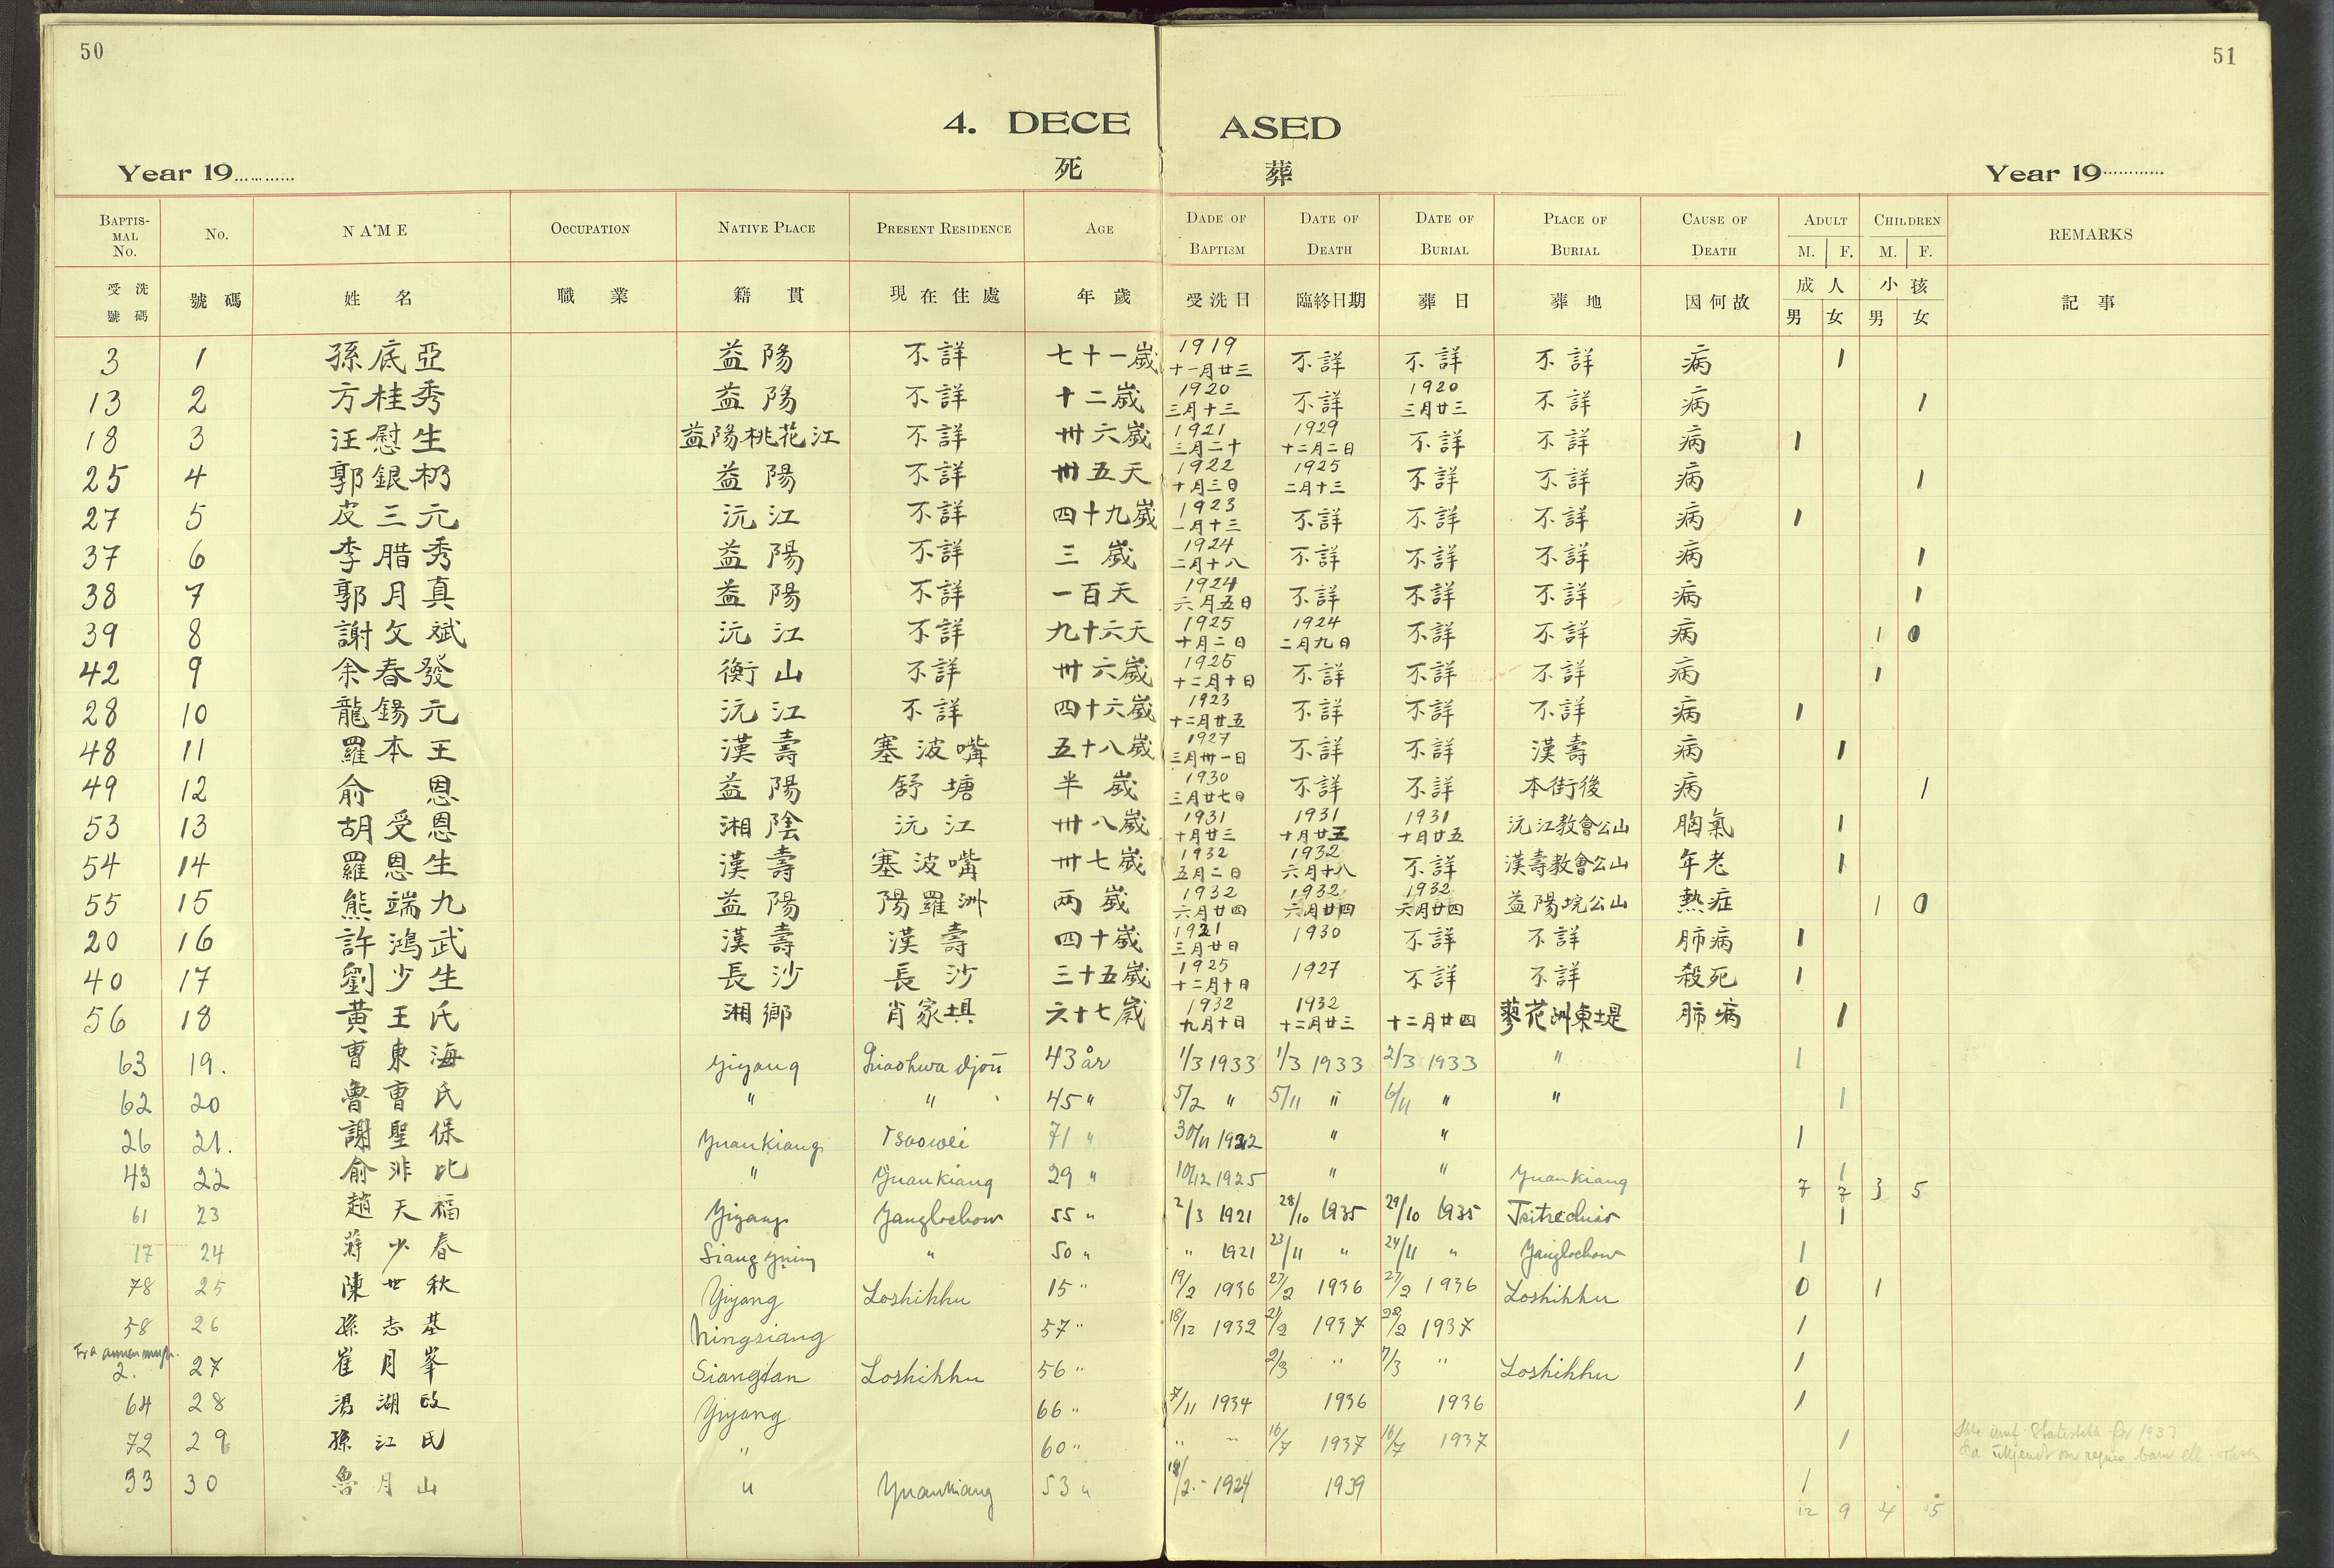 50
51
4. DECEASED
死 葬
Year 19............
Year 19............
BAPTISMAL No. No. NAME OCCUPATION NATIVE PLACE PRESENT RESIDENCE AGE DADE OF BAPTISM DATE OF DEATH DATE OF BURIAL PLACE OF BURIAL CAUSE OF DEATH ADULT M. F. CHILDREN M. F. REMARKS
受洗號碼 號碼 姓名 職業 籍貫 現在住處 年歲 受洗日 臨終日期 葬日 葬地 因何故 成人 男 女 小孩 男 女 記事
3 1 孫底亞 益陽 不詳 七十一歲 1919 十一月廿三 不詳 不詳 不詳 病 1
13 2 方桂秀 益陽 不詳 十二歲 1920 三月十三 不詳 1920 三月廿三 不詳 病 1
18 3 汪慰生 益陽桃花江 不詳 卅六歲 1921 三月二十 1929 十二月二日 不詳 不詳 病 1
25 4 郭銀杒 益陽 不詳 卅五天 1922 十月三日 1925 二月十三 不詳 不詳 病 1
27 5 皮三元 沅江 不詳 四十九歲 1923 一月十三 不詳 不詳 不詳 病 1
37 6 李腊秀 益陽 不詳 三歲 1924 二月十八 不詳 不詳 不詳 病 1
38 7 郭月真 益陽 不詳 一百天 1924 六月五日 不詳 不詳 不詳 病 1
39 8 謝文斌 沅江 不詳 九十六天 1925 十月二日 1924 二月九日 不詳 不詳 病 1 0
42 9 余春發 衡山 不詳 卅六歲 1925 十二月十日 不詳 不詳 不詳 病 1
28 10 龍錫元 沅江 不詳 四十六歲 1923 十二月廿五 不詳 不詳 不詳 病 1
48 11 羅本王 漢壽 塞波嘴 五十八歲 1927 三月卅一日 不詳 不詳 漢壽 病 1
49 12 俞恩 益陽 舒塘 半歲 1930 三月廿七日 不詳 不詳 本街後 病 1
53 13 胡受恩 湘陰 沅江 卅八歲 1931 十月廿三 1931 十月廿五 1931 十月廿五 沅江教會公山 胸氣 1
54 14 羅恩生 漢壽 塞波嘴 卅七歲 1932 五月二日 1932 六月十八 不詳 漢壽教會公山 年老 1
55 15 熊端九 益陽 陽羅洲 两歲 1932 六月廿四 1932 六月廿四 1932 六月廿四 益陽垸公山 熱症 1 0
20 16 許鴻武 漢壽 漢壽 四十歲 1921 三月廿日 1930 不詳 不詳 肺病 1
40 17 劉少生 長沙 長沙 三十五歲 1925 十二月十日 1927 不詳 不詳 殺死 1
56 18 黃王氏 湘鄉 肖家垻 六十七歲 1932 九月十日 1932 十二月廿三 十二月廿四 蓼花洲東堤 肺病 1
63 19. 曹東海 Yiyang djou 43 år 1/3 1933 1/3 1933 2/3 1933 " 1
62 20 魯曹氏 " " 45 " 5/2 " 5/11 " 6/11 " " 1
26 21. 謝聖保 Yuankiang Tsaowei 71 " 30/11 1922 " " 1
43 22 俞非比 " Yuankiang 29 " 10/12 1925 " " Yuankiang 1
7 7 3 5
61 23 趙天福 Yiyang Yanglochow 55 " 2/3 1921 28/10 1935 29/10 1935 1
17 24 蔣少春 Siangyin " 50 " " 1921 23/11 " 24/11 " Yanglochow 1
78 25 陳世秋 Yiyang Loshikhu 15 " 19/2 1936 27/2 1936 27/2 1936 Loshikhu 0 1
58 26 孫志基 Ningsiang 57 " 18/12 1932 21/2 1937 22/2 1937 1
Fra annen
2. 27 崔月峯 Siangtan Loshikhu 56 " 2/3 " 7/3 " Loshikhu 1
64 28 湯湖政 Yiyang 66 " 7/11 1934 1936 1936 1
72 29 孫江氏 " 60 " " " 16/7 1937 16/7 1937 1
33 30 魯月山 " Yuankiang 53 " 1924 1939 1
12 9 4 5